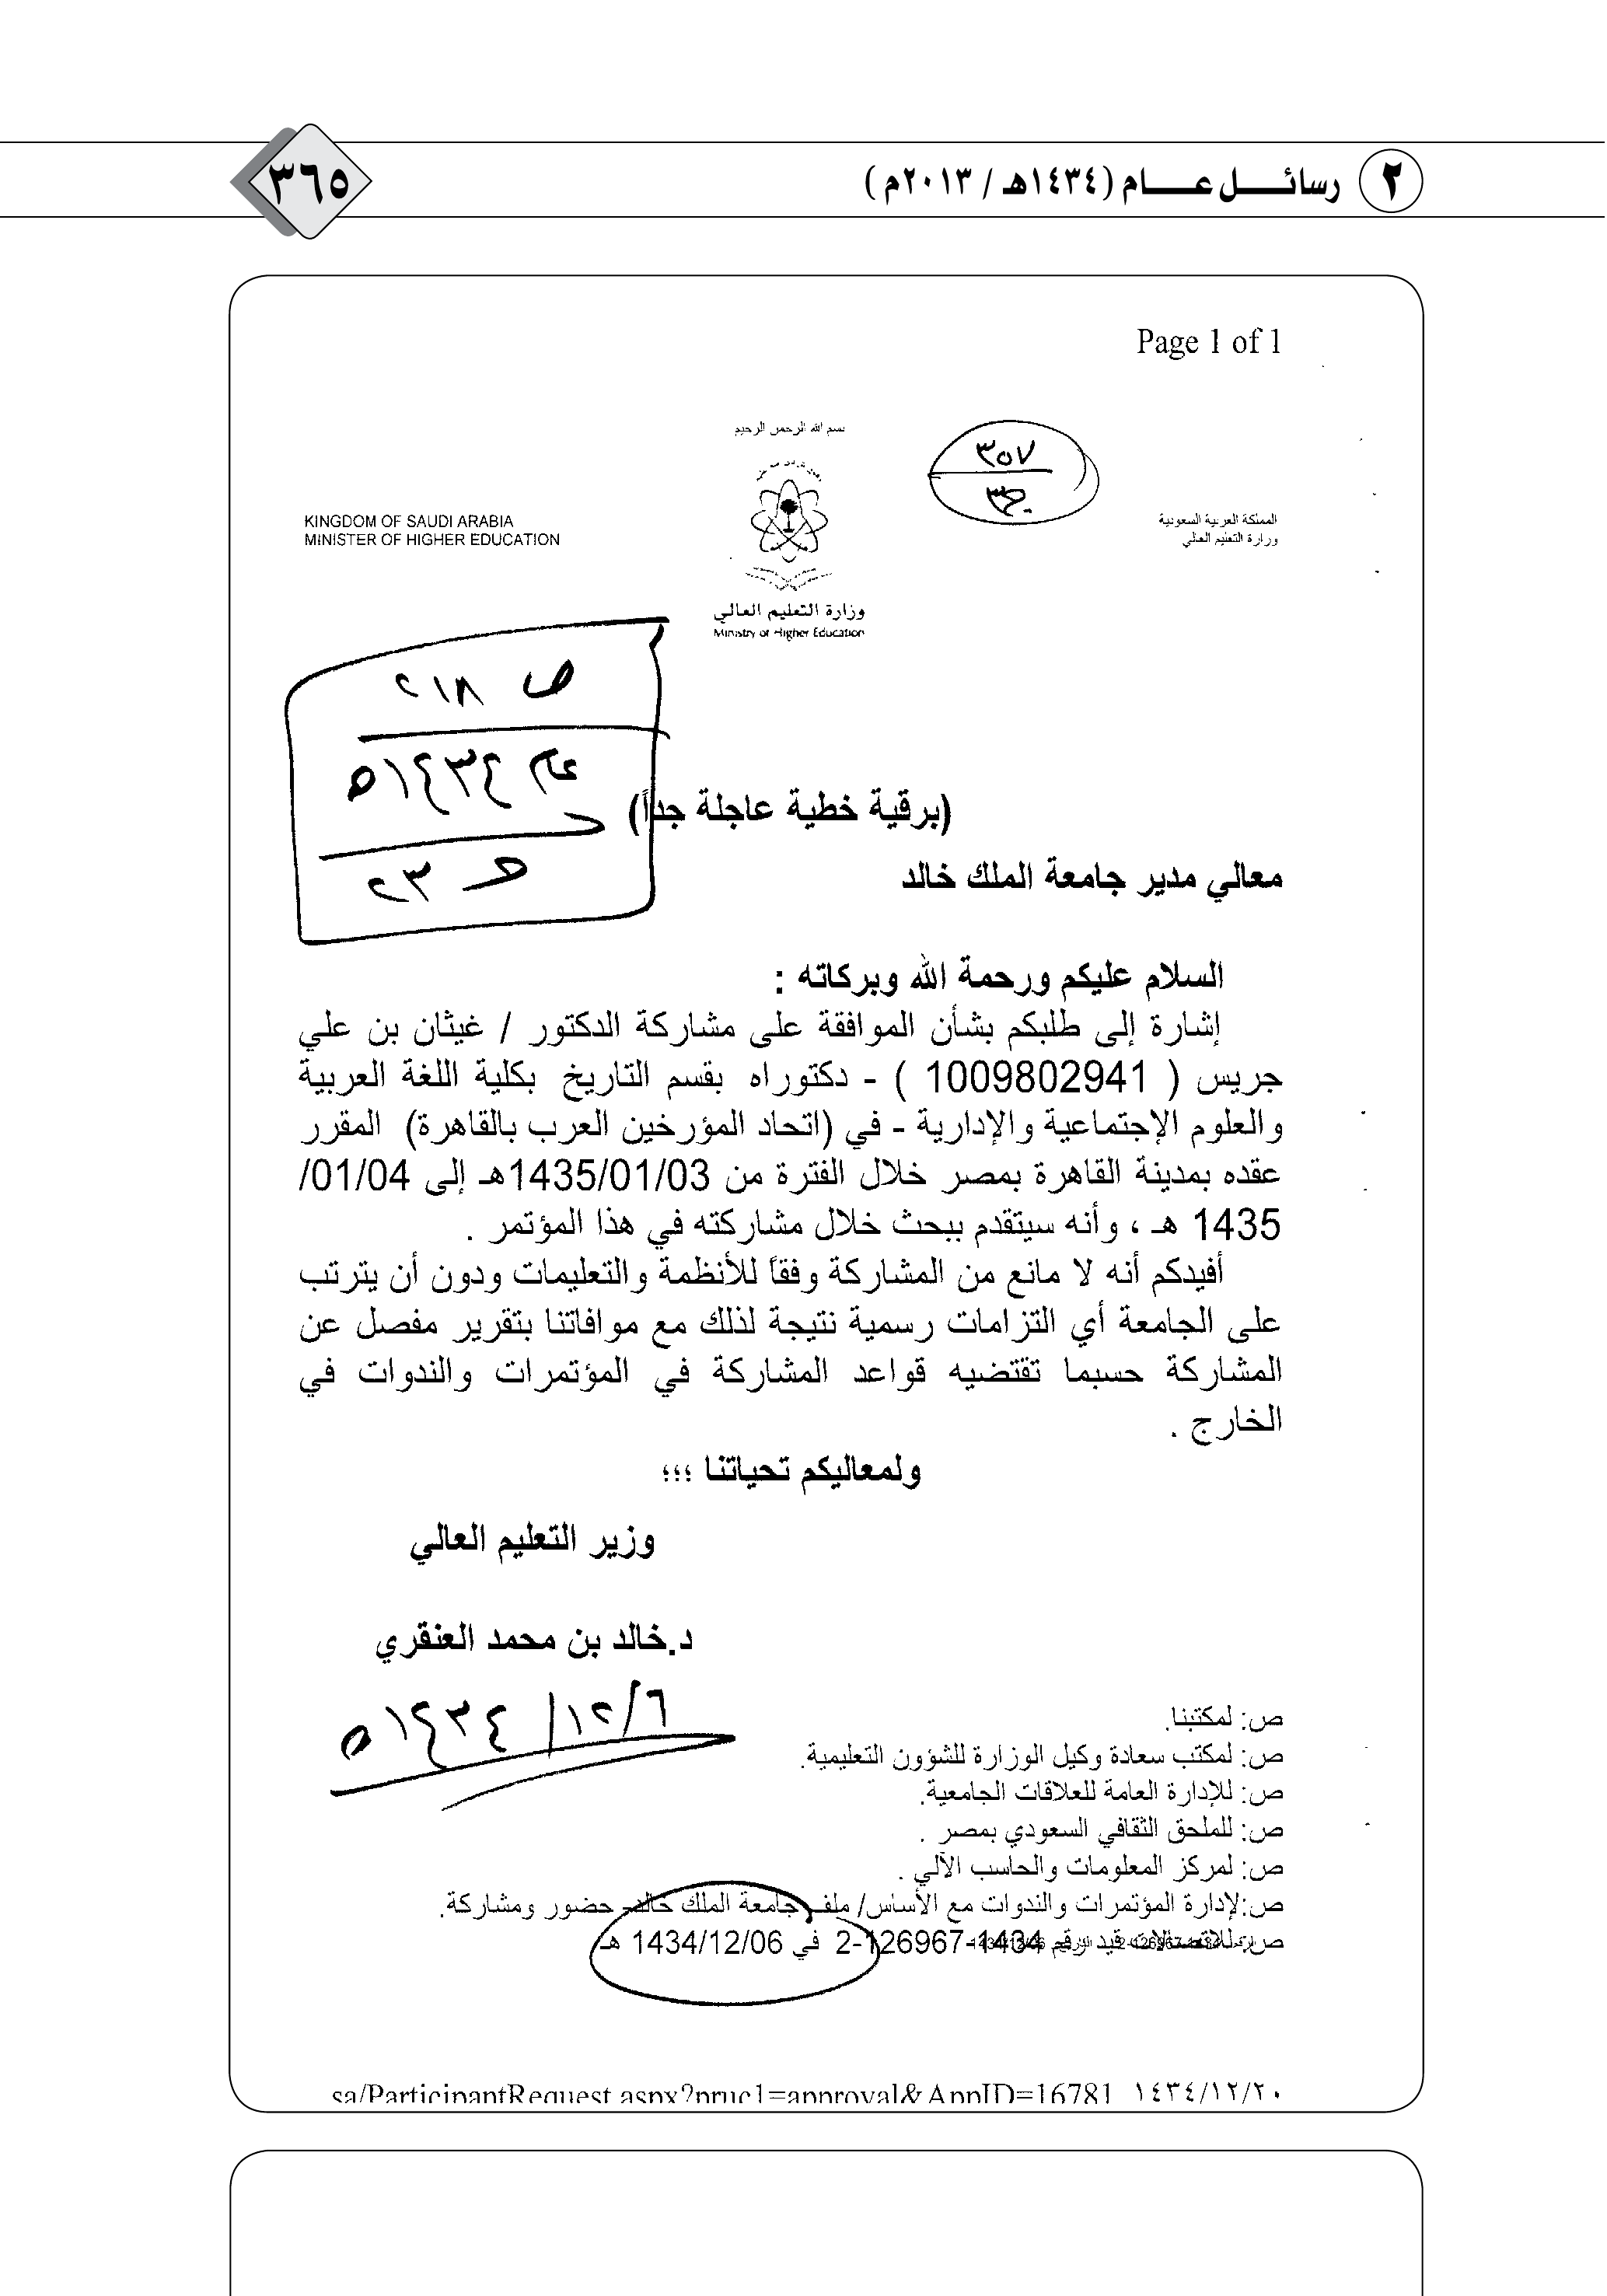 ٢ رسائل عام (١٤٣٤هـ / ٢٠١٣م)
٣٦٥
Page 1 of 1
بسم الله الرحمن الرحيم
٣٥٧
KINGDOM OF SAUDI ARABIA
MINISTER OF HIGHER EDUCATION
المملكة العربية السعودية
وزارة التعليم العالي
وزارة التعليم العالي
Ministry of Higher Education
ص ٢١٨
عام ١٤٣٤ه
٢٣
(برقية خطية عاجلة جداً)
معالي مدير جامعة الملك خالد
السلام عليكم ورحمة الله وبركاته :
إشارة إلى طلبكم بشأن الموافقة على مشاركة الدكتور / غيثان بن علي
جريس ( 1009802941 ) - دكتوراه بقسم التاريخ بكلية اللغة العربية
والعلوم الإجتماعية والإدارية - في (اتحاد المؤرخين العرب بالقاهرة) المقرر
عقده بمدينة القاهرة بمصر خلال الفترة من 1435/01/03هـ إلى 01/04/
1435 هـ ، وأنه سيتقدم ببحث خلال مشاركته في هذا المؤتمر .
أفيدكم أنه لا مانع من المشاركة وفقاً للأنظمة والتعليمات ودون أن يترتب
على الجامعة أي التزامات رسمية نتيجة لذلك مع موافاتنا بتقرير مفصل عن
المشاركة حسبما تقتضيه قواعد المشاركة في المؤتمرات والندوات في
الخارج .
ولمعاليكم تحياتنا ؛؛؛
وزير التعليم العالي
د.خالد بن محمد العنقري
٦/١٢/١٤٣٤ه
ص: لمكتبنا.
ص: لمكتب سعادة وكيل الوزارة للشؤون التعليمية.
ص: للإدارة العامة للعلاقات الجامعية.
ص: للملحق الثقافي السعودي بمصر .
ص: لمركز المعلومات والحاسب الآلي .
ص:لإدارة المؤتمرات والندوات مع الأساس/ ملف جامعة الملك خالد- حضور ومشاركة.
ص: للاتصالات قيد رقم 1434-126967-2 في 1434/12/06 هـ
sa/ParticipantRequest.aspx?pruc1=approval&AppID=16781 ١٤٣٤/١٢/٢٠